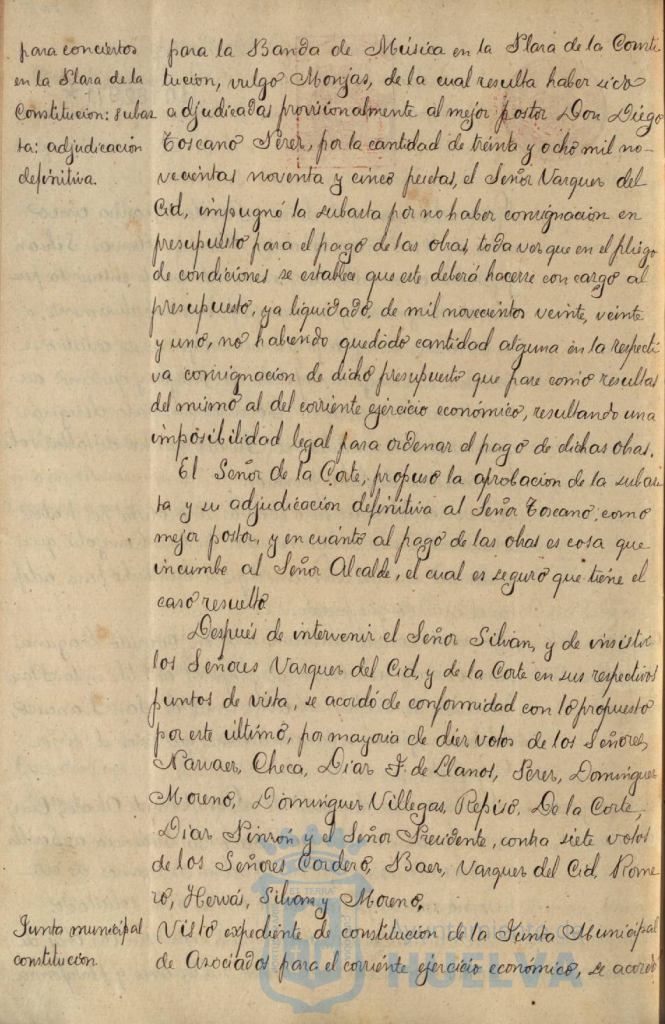 para conciertos
en la Plaza de la
Constitución: subas
ta: adjudicación
definitiva.
para la Banda de Música en la Plaza de la Consti
tución, vulgo Monjas, de la cual resulta haber sido
adjudicadas provisionalmente al mejor postor Don Diego
Toscano Perez, por la cantidad de treinta y ocho mil no-
vecientas noventa y cinco pesetas, el Señor Vazquez del
Cid, impugnó la subasta por no haber consignación en
presupuesto para el pago de las obras, toda vez que en el pliego
de condiciones se establece que este deberá hacerse con cargo al
presupuesto, ya liquidado, de mil novecientos veinte, veinte
y uno, no habiendo quedado cantidad alguna en la respecti
va consignación de dicho presupuesto que pase como resultas
del mismo al del corriente ejercicio económico, resultando una
imposibilidad legal para ordenar el pago de dichas obras.
El Señor de la Corte, propuso la aprobación de la subas
ta y su adjudicación definitiva al Señor Toscano, como
mejor postor, y en cuanto al pago de las obras es cosa que
incumbe al Señor Alcalde, el cual es seguro que tiene el
caso resuelto.
Después de intervenir el Señor Silvan, y de insistir
los Señores Vazquez del Cid, y de la Corte en sus respectivos
puntos de vista, se acordó de conformidad con lo propuesto
por este último, por mayoria de diez votos de los Señores,
Narvaez, Checa, Diaz F. de Llanos, Perez, Dominguez
Moreno, Dominguez Villegas, Repiso, De la Corte,
Diaz Pinzón y el Señor Presidente, contra siete votos
de los Señores Cordero, Baez, Vazquez del Cid, Rome
ro, Hervás, Silvan y Moreno.
Junta municipal
constitución.
Visto expediente de constitución de la Junta Municipal
de Asociados para el corriente ejercicio económico, se acordó
HUELVA